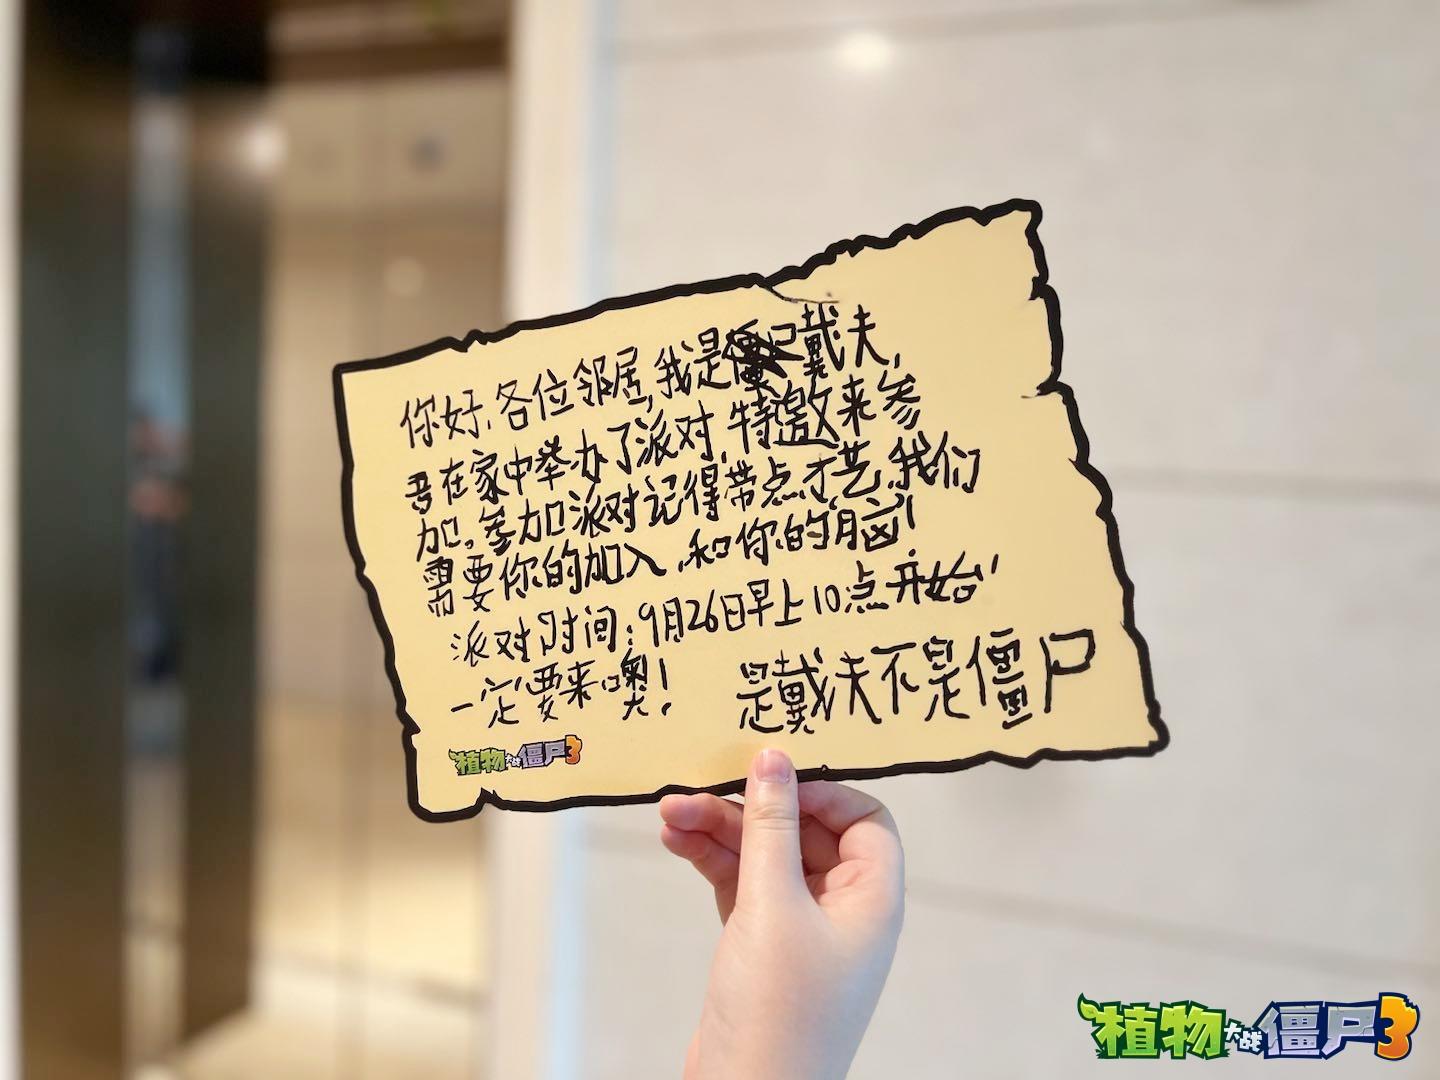 你好,各位邻居,我是僵尸戴夫,
吾在家中举办了派对,特邀来参
加。参加派对记得带点才艺,我们
需要你的加入,和你的脑!
派对时间:9月26日早上10点开始!
一定要来噢!
是戴夫不是僵尸
植物大战僵尸3
植物大战僵尸3